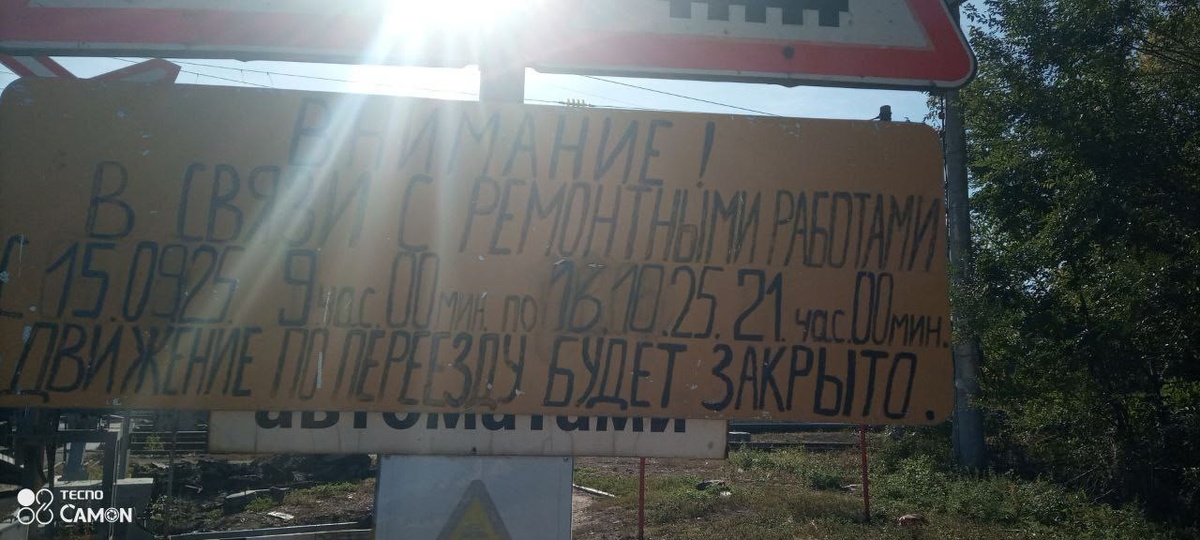 ВНИМАНИЕ!
В СВЯЗИ С РЕМОНТНЫМИ РАБОТАМИ
С 15.0925. 9 час. 00 мин. по 16.10.25. 21 час. 00 мин.
ДВИЖЕНИЕ ПО ПЕРЕЕЗДУ БУДЕТ ЗАКРЫТО.
автоматами
TECNO
CAMON